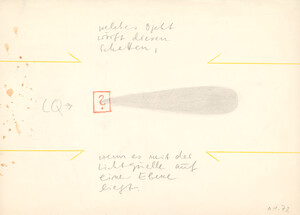 welches Objekt
wirft diesen
Schatten,
LQ→
?
wenn es mit der
Lichtquelle auf
einer Ebene
liegt
72